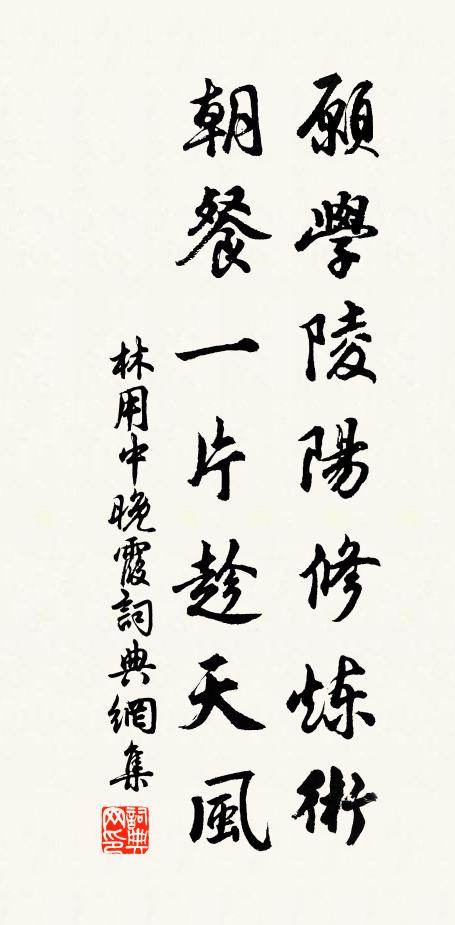 願學陵陽修炼術
朝餐一片趁天風
林用中晚霞詞典網集
詞典网印